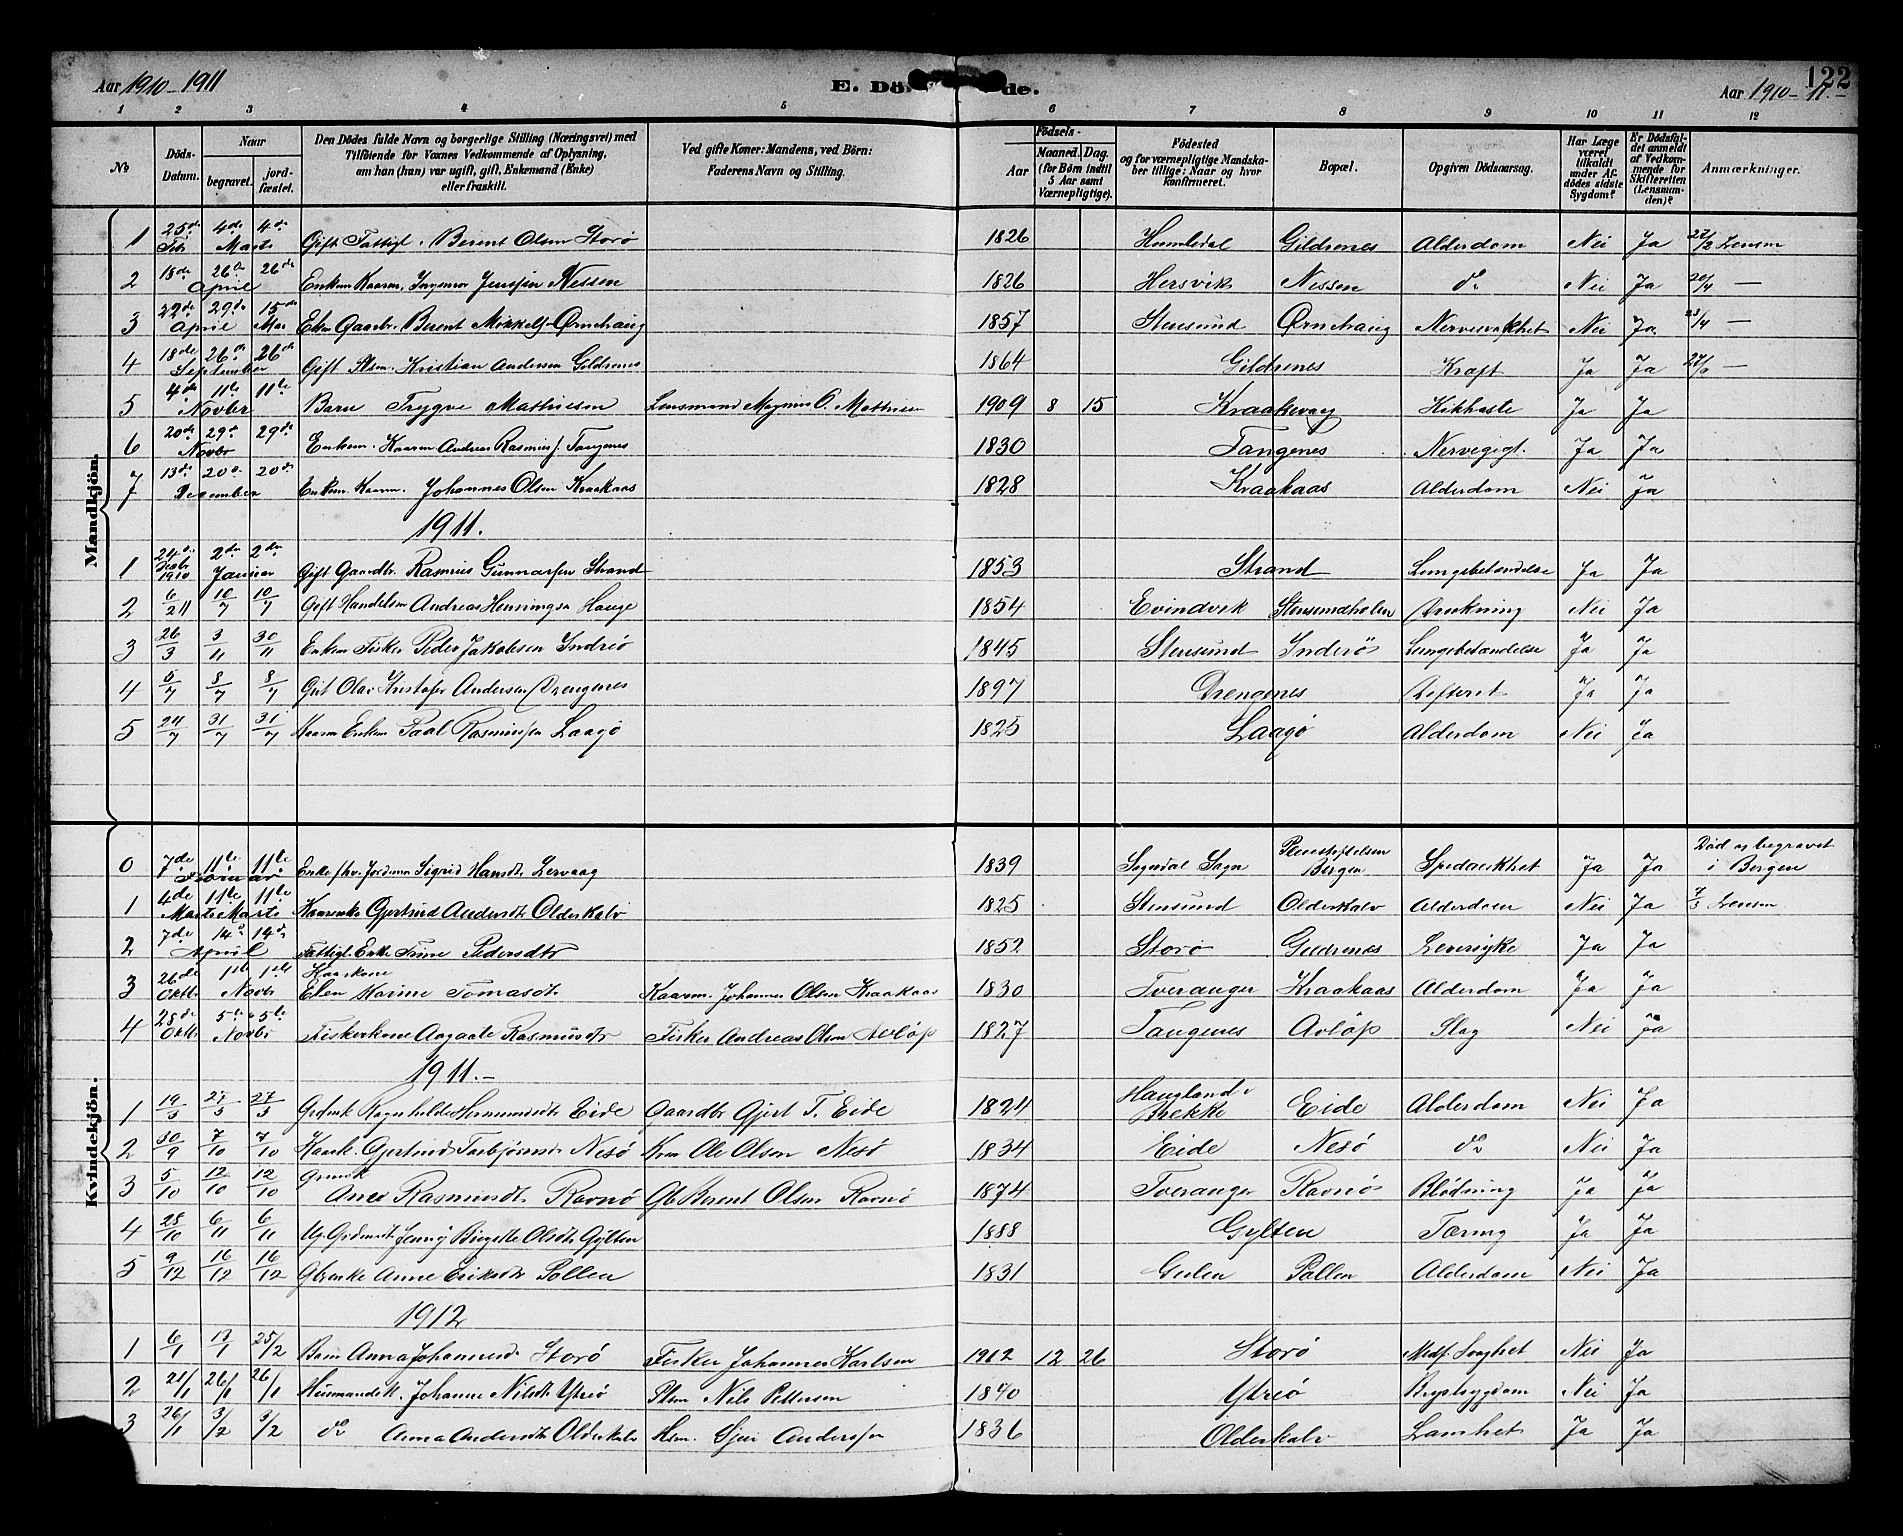 Aar 1910-1911 E. Dö de. Aar 1910-11.- 122
1 2 3 4 5 6 7 8 9 10 11 12
No. Döds-Datum. Naar begravet. jordfæstet. Den Dödes fulde Navn og borgerlige Stilling (Næringsvei) med Tilföiende for Voxnes Vedkommende af Oplysning, om han (hun) var ugift, gift, Enkemand (Enke) eller fraskilt. Ved gifte Koner: Mandens, ved Börn: Faderens Navn og Stilling. Födsels- Aar Maaned. Dag. (for Börn indtil 5 Aar samt Værnepligtige). Födested og for værnepligtige Mandskaber tillige: Naar og hvor konfirmeret. Bopæl. Opgiven Dödsaarsag. Har Læge været tilkaldt under Afdödes sidste Sygdom? Er Dödsfaldet anmeldt af Vedkommende for Skifteretten (Lensmanden)? Anmærkninger.
Mandkjön.
1 25de Feb 4de 4de Marts Gift Fattigl. Berent Olsen Storö 1826 Humledal Gildrenes Alderdom Nei Ja 27/2 Lensm
2 18de 26de 26de April Enkem Kaarm. Ingemor Jenssen Nessen 1826 Hersvik Nessen do Nei Ja 20/4 —
3 22de April 29de 15de Mai Ekm Gaardbr. Berent Mikkels. Ørnehaug 1857 Stensund Ørnehaug Nervesvakhet Nei Ja. 23/4 —
4 18de 26de 26de September Gift Plsm. Kristian Andersen Gildrenes 1864 Gildrenes Kræft Ja Ja —
5 4de 11te 11te Novbr Barn Trygve Mathiesen Lensmand Magnus O. Mathiesen 1909 8 15 Kraakevaag Kikhoste Ja Ja
6 20de 29de 29de Novbr Enkem. Kaarm Andreas Rasmus. Tangenes 1830 Tangenes Nervegigt. Ja Ja
7 13de 20de 20de Desember Enkem. Kaarm. Johannes Olsen Kraakaas 1828 Kraakaas Alderdom Nei Ja
1911.
1 24de 1910 2den 2den Januar Gift Gaardbr. Rasmus Gunnarsen Strand 1853 Strand Lungebetændelse Ja Ja
2 6/211 10/7 10/7 Gift Handelsm Andreas Henningsen Hauge 1854 Evindvik Stensundholm Drukning Nei Ja
3 26/3 3/11 30/11 Enkem Fisker Peder Jakobsen Indreö 1845 Stensund Inderö Lungebetændelse Ja Ja
4 5/7 8/7 8/7 Gut Olav Kristofer Andersen Drengenes 1897 Drengenes Difterit Ja Ja
5 24/7 31/7 31/7 Kaarm Enkem Paal Rasmussen Laagö 1825 Laagö Alderdom Nei Ja
Kvindekjön.
0 7de 11te 11te Enke fhv. Jordemor Sigrid Hansdt Lervaag 1839 Sogndal Sogn Pleiestiftelsen Bergen Spedalskhet Ja Ja Död og begravet i Bergen
1 4de Marts 11te 11te Marts Kaarenke Gjertrud Andersdt Olderkalv 1825 Stensund Olderkalv Alderdom Nei Ja 7/3 Lensm
2 7de 14de 14de April Fattigl. Enke Trine Pedersdtr 1852 Storö Gildrenes Leversyke Ja Ja
3 26de Oktbr 1ste 1ste Novbr Kaarkone Elen Marine Tomasdt Kaarm. Johannes Olsen Kraakaas 1830 Tveranger Kraakaas Alderdom Ja Ja
4 28de Oktbr 5te 5te Novbr Fiskerkone Aagaate Rasmusdtr Fisker Andreas Olsen Avlöp 1827 Tangenes Avlöp Slag Nei Ja
1911.-
1 19/3 27/3 27/3 Ragnhilde Hermundsdt Eide Gaardbr Gjert T. Eide 1824 Haugland i Brekke Eide Alderdom Nei Ja
2 30/9 7/10 7/10 Kaark. Gjertrud Torbjörnsdt Nesö Krm Ole Olsen Nesö 1834 Eide Nesö do Nei Ja
3 5/10 12/10 12/10 Ane Rasmusdt Ravnö Gb Berent Olsen Ravnö 1874 Tveranger Ravnö Blödning Ja Ja
4 28/10 6/11 6/11 Jenny Birgitte Olsdt Gylten 1888 Gylten Tæring Ja Ja
5 9/12 16/12 16/12 Gbrenke Anne Eriksdt Pollen 1831 Gulen Pollen Alderdom Nei Ja
1912
1 6/1 13/1 25/2 Barn Anna Johannesd. Storö Fisker Johannes Karlsen 1912 12 26 Storö Medf. Svaghet Nei Ja
2 21/1 26/1 26/1 Husmandsk. Johanne Nilsdt Ytreö Plsm Nils Pettersen 1840 Ytreö Brystsygdom Nei Ja
3 26/1 3/2 3/2 do Anna Andersdt Olderkalv Hsm. Andersen 1836 Olderkalv Lamhet Ja Ja